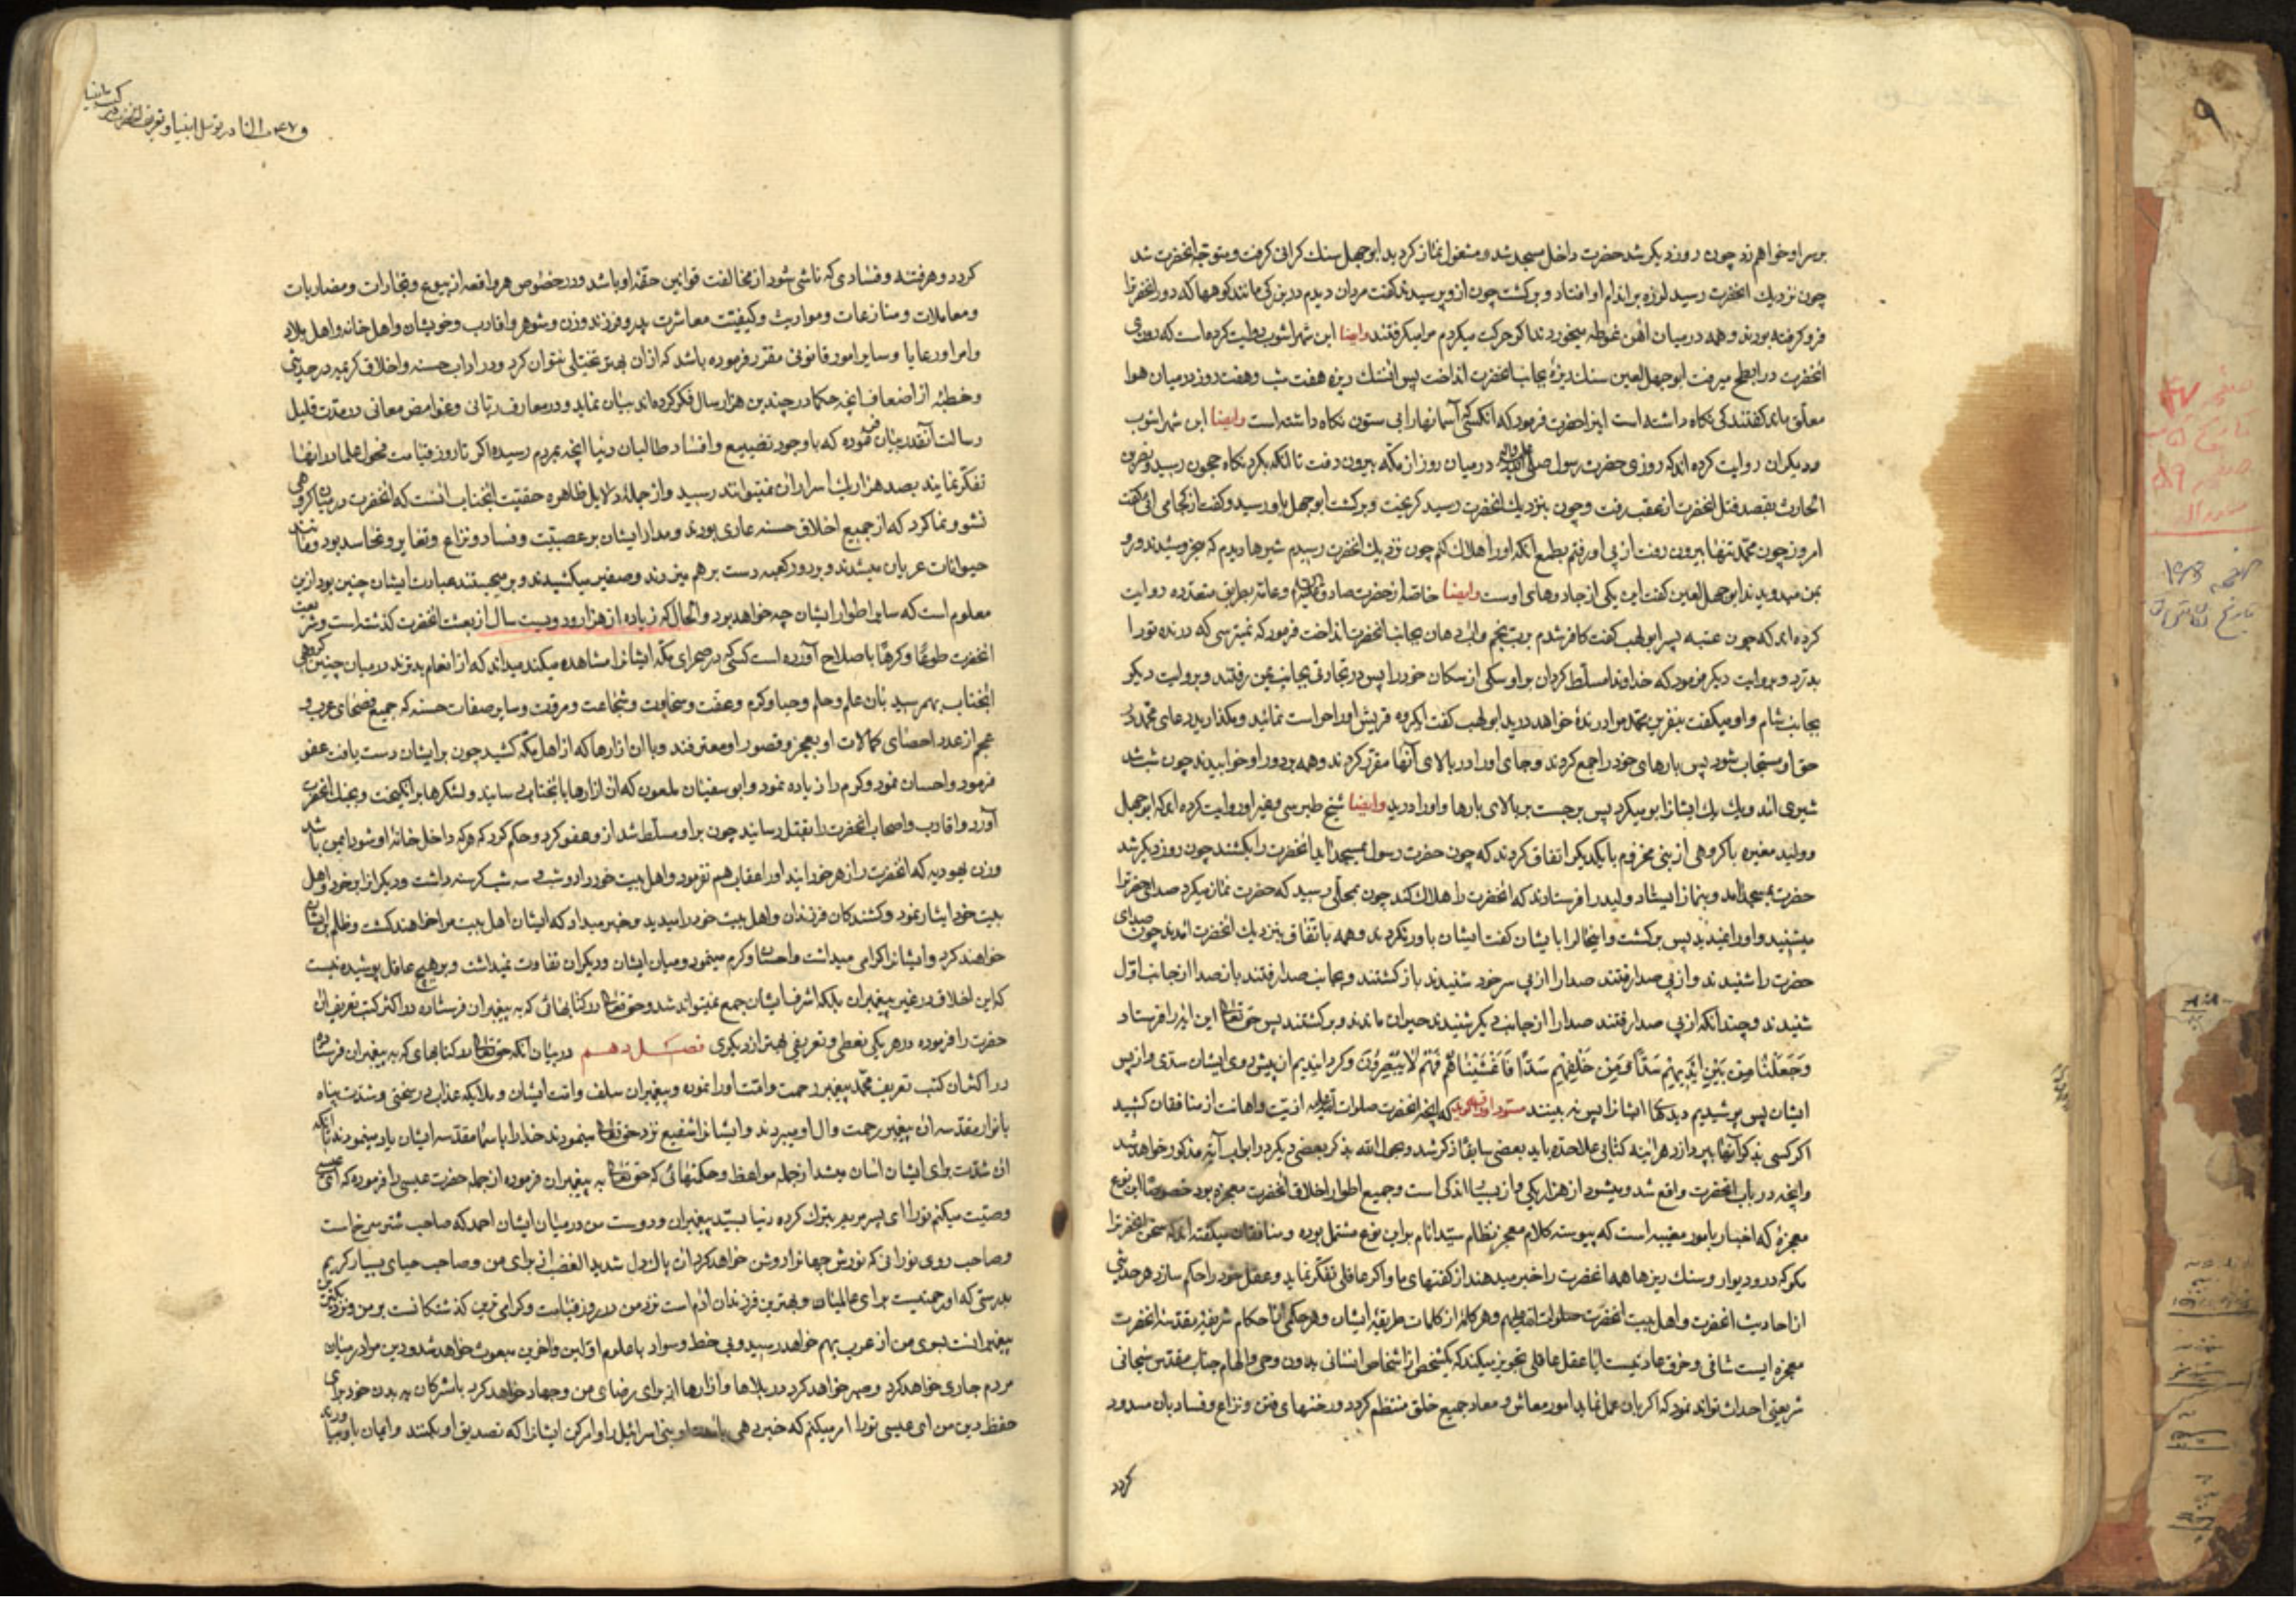 بر سر او خواهم زد چون روز دیکر شد حضرت داخل مسجد شد و مشغول نماز کردید ابوجهل سنك کرانی کرفت و متوجه انحضرت شد
چون نزدیك انحضرت رسید لرزه بر اندام او افتاد و برکشت چون از و پرسیدند کفت مردان دیدم در بزرکی مانند کوهها که دور انحضرترا
فرو کرفته بودند و همه در میان اهن غوطه میخوردند اکر حرکت میکردم مرا میکرفتند وایضا ابن شهراشوب روایت کرده است که روزی
انحضرت در ابطح میرفت ابوجهل لعین سنك ریزهٔ بجانب انحضرت انداخت پس ان سنك ریزه هفت شب و هفت روز در میان هوا
معلّق ماند کفتند کی نکاه داشته است اینرا حضرت فرمود که انکسی که آسمانهارا بی ستون نکاه داشته است وایضا ابن شهراشوب
و دیکران روایت کرده اند که روزی حضرت رسول صلی الله علیه واله در میان روز از مکّه بیرون رفت تا انکه بکردنکاه حجون رسید و نضر بن
الحارث بقصد قتل انحضرت از عقب رفت و چون بنزدیك انحضرت رسید کریخت و برکشت ابوجهل باو رسید و کفت از کجا می ائی کفت
امروز چون محمّد تنها بیرون رفت از پی او رفتم بطمع انکه اورا هلاك کنم چون نزدیك انحضرت رسیدم شیرها دیدم که میخروشیدند و رو
بمن میدویدند ابوجهل لعین کفت این یکی از جادوهای اوست وایضا خاصّه از حضرت صادق و عامّه بطریق متعدّده روایت
کرده اند که چون عتبه پسر ابولهب کفت کافر شدم بربّ نجم و اب دهان بجانب انحضرت انداخت فرمود که نمیترسی که درنده تو را
بدرّد و بروایت دیکر فرمود که خداوندا مسلّط کردان بر او سکی از سکان خود را پس در تجارتی بجانب یمن رفتند و بروایت دیکر
بجانب شام و او میکفت بنفرین محمّد مرا درندهٔ خواهد درید ابولهب کفت ایکروه قریش اورا حراست نمائید و مکذارید دعای محمّد در
حق او مستجاب شود پس بارهای خود را جمع کردند و جای اورا در بالای آنها مقرّر کردند و همه بر دور او خوابیدند چون شب شد
شیری امد و یك یك ایشانرا بو میکرد پس برجست بر بالای بارها و اورا درید وایضا شیخ طبرسی و غیر او روایت کرده اند که ابوجهل
و ولید مغیره با کروهی از بنی مخزوم با یکدیکر اتفاق کردند که چون حضرت رسول بمسجد آید انحضرت را بکشند چون روز دیکر شد
حضرت بمسجد امد و بنماز ایستاد ولید را فرستادند که انحضرت را هلاك کند چون بمحلّی رسید که حضرت نماز میکرد صدای حضرترا
میشنید و اورا نمیدید پس برکشت و اینحالرا بایشان کفت ایشان باور نکردند و همه باتّفاق بنزدیك انحضرت امدند چون صدای
حضرت را شنیدند و از پی صدا رفتند صدا را از پی سر خود شنیدند باز کشتند و بجانب صدا رفتند باز صدا از جانب اوّل
شنیدند و چندانکه از پی صدا رفتند صدا را از جانب دیکر شنیدند حیران ماندند و برکشتند پس حق تعالی این ایه را فرستاد
وَجَعَلْنَا مِنْ بَیْنِ اَیْدِیهِمْ سَدًّا وَمِنْ خَلْفِهِمْ سَدًّا فَاَغْشَیْنَاهُمْ فَهُمْ لَا یُبْصِرُونَ و کردانیدیم از پیش روی ایشان سدّی و از پس
ایشان پس پوشیدیم دیدهای ایشانرا پس نه بینند که انچه انحضرت صلوات الله علیه از اذیّت و اهانت از منافقان کشید
اکر کسی بذکر آنها بپردازد هراینه کتابی علاحدّه باید بعضی سابقا ذکر شد و بحول الله بذکر بعضی دیکر در ابواب آتیه مذکور خواهد شد
و انچه در باب انحضرت واقع شد و میشود از هزار یکی و از بسیار اندکی است و جمیع اطوار و اخلاق انحضرت معجزه بود خصوصًا این نوع
معجزهٔ که اخبار بامور مغیبه است که پیوسته کلام معجز نظام سیّد انام بر این نوع مشتمل بوده و منافقان میکفته اند که سخن انحضرترا
مکو که در و دیوار و سنك ریزها همه انحضرت را خبر میدهند از کفتهای ما و اکر عاقلی تفکّر نماید و عقل خود را حکم سازد هر حدیثی
از احادیث انحضرت و اهل بیت انحضرت صلوات الله علیهم و هر کلمهٔ از کلمات طریقهٔ ایشان و هر حکمی از احکام شریفهٔ مقدّسهٔ انحضرت
معجزه ایست شافی و خرق عادتیست ایا عقل عاقلی تجویز میکند که یکشخصی از اشخاص انسانی بدون وحی و الهام جناب مقدّس سبحانی
شریعتی احداث تواند نمود که اکر بان عمل نمایند امور معاش و معاد جمیع خلق منتظم کردد و رخنهای فتن و نزاع و فساد بان مسدود
کردد
کردد و هر فتنه و فسادی که ناشی شود از مخالفت قوانین حقّهٔ او باشد و در خصوص هر واقعه از بیوع و تجارات و مضاربات
و معاملات و منازعات و مواریث و کیفیّت معاشرت پدر و فرزند و زن و شوهر و اقارب و خویشان و اهل خانه و اهل بلاد
و امرا و رعایا و سایر امور قانونی مقرّر فرموده باشد که از ان بهتر تخیّلی نتوان کرد و در اداب حسنه و اخلاق کریمه در حدیثی
و خطبهٔ از اضعاف انچه حکما در چندین هزار سال فکر کرده اند بیان نماید و در معارف ربّانی و غوامض معانی در مدّت قلیل
رسالت آنقدر بیان فرموده که باوجود تضییع و افساد طالبان دنیا انچه بمردم رسیده اکر تا روز قیامت فحول علما در انها
تفکّر نمایند بصد هزار یك اسرار ان نمیتوانند رسید و از جملهٔ دلایل ظاهره حقیّت انجناب انست که انحضرت در میان کروهی
نشو و نما کرد که از جمیع اخلاق حسنه عاری بودند و مدار ایشان بر عصبیّت و فساد و نزاع و تغایر و تحاسد بود و مانند
حیوانات عریان میشدند و بر دور کعبه دست بر هم میزدند و صفیر میکشیدند و بر میجستند عبادت ایشان چنین بود از این
معلوم است که سایر اطوار ایشان چه خواهد بود و الحال که زیاده از هزار و دویست سال از بعثت انحضرت کذشته است و شریعت
انحضرت طوعًا و کرهًا باصلاح آورده است کسی که در صحرای مکّه ایشانرا مشاهده میکند میداند که از انعام بدترند در میان چنین کروهی
انجناب بهم رسید بان علم و حلم و حیا و کرم و عفّت و سخاوت و شجاعت و مروّت و سایر صفات حسنه که جمیع فصحای عرب و
عجم از عدد احصای کمالات او بعجز و قصور او معترفند و با ان ازارها که از اهل مکّه کشید چون بر ایشان دست یافت عفو
فرمود و احسان نمود و کرم را زیاده نمود و ابوسفیان ملعون که ان ازارها بانجناب رسانید و لشکرها برانکیخت و بجنك انحضرت
آورد و اقارب و اصحاب انحضرت را بقتل رسانید چون بر او مسلّط شد از و عفو کرد و حکم کرد که هرکه داخل خانهٔ او شود ایمن باشد
و زن یهودیه که انحضرت را زهر خورانید اورا عقاب هم نفرمود و اهل بیت خود را دو شب و سه شب کرسنه داشت و دیکرانرا بر خود و اهل
بیت خود ایثار نمود و کشندکان فرزندان و اهل بیت خود را میدید و خبر میداد که ایشان اهل بیت مرا خواهند کشت و ظلم بر ایشان
خواهند کرد و ایشانرا کرامی میداشت و احسان و کرم مینمود و میان ایشان و دیکران تفاوت نمیداشت و بر هیچ عاقل پوشیده نیست
که این اخلاق در غیر پیغمبران بلکه اشرف ایشان جمع نمیتواند شد و حق تعالی در کتابهائی که به پیغمبران فرستاده در اکثر کتب تعریف ان
حضرت را فرموده و در هر یکی نعتی و تعریفی بهتر از دیکری فصل دهم در بیان آنکه حق تعالی در کتابهای که به پیغمبران فرستاده
در اکثر ان کتب تعریف محمّد پیغمبر رحمت و امّت اورا نموده و پیغمبران سلف و امّت ایشان و ملایکه عذاب در سختی و شدّت پناه
بانوار مقدّسه ان پیغمبر رحمت و ال او میبردند و ایشانرا شفیع نزد حق تعالی مینمودند خدا را باسماء مقدّسه ایشان یاد مینمودند تا آنکه
ان شدّت برای ایشان اسان میشد از جمله مواعظ و حکمتهائی که حق تعالی به پیغمبران فرموده از جمله حضرت عیسی را فرموده که ای عیسی
وصیّت میکنم تورا ای پسر مریم بترك کرده دنیا بسیّد پیغمبران و دوست من در میان ایشان احمد که صاحب شتر سرخ است
و صاحب روی نورانی که نورش جهانرا روشن خواهد کرد ان پاك دل شدید الغضب از برای من و صاحب حیای بسیار کریم
بدرستی که او رحمتست برای عالمیان و بهترین فرزندان ادم است نزد من در روز قیامت و کرامی ترین کذشتکانست بر من و نزدیکترین
پیغمبرانست بسوی من از عرب بهم خواهد رسید و بی خط و سواد با علوم اوّلین و اخرین مبعوث خواهد شد و دین مرا در میان
مردم جاری خواهد کرد و صبر خواهد کرد در بلاها و ازارها از برای رضای من و جهاد خواهد کرد با مشرکان به بدن خود برای
حفظ دین من ای عیسی تورا امر میکنم که خبر دهی بنی اسرائیل را و امر کن ایشانرا که تصدیق او بکنند و ایمان باو بیاورند